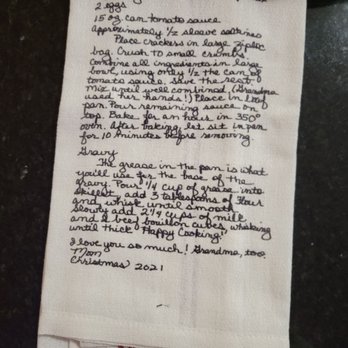 2 eggs
15 og. can tomato sauce
Approximately 1/2 sleave saltines
Place crackers in large ziploc
bag. Crush to small crumbs
Combine all ingredients in large
bowl, using only 1/2 the can of
tomato sauce. Save the rest.
Mix until well combined (Grandma
used her hands!) Place in loaf
pan. Pour remaining sauce on
top. Bake for an hour in 350°
oven. After baking let sit in pan
for 10 minutes before removing
Gravy
The grease in the pan is what
you'll use for the base of the
gravy. Pour 1/4 cup of grease into
skillet, add 3 tablespoons of flour
and whisk until smooth
slowly add 2 1/4 cups of milk
and 2 beef bouillon cubes, whisking
until thick Happy Cooking!
I love you so much! Grandma, too
Mom
Christmas 2021